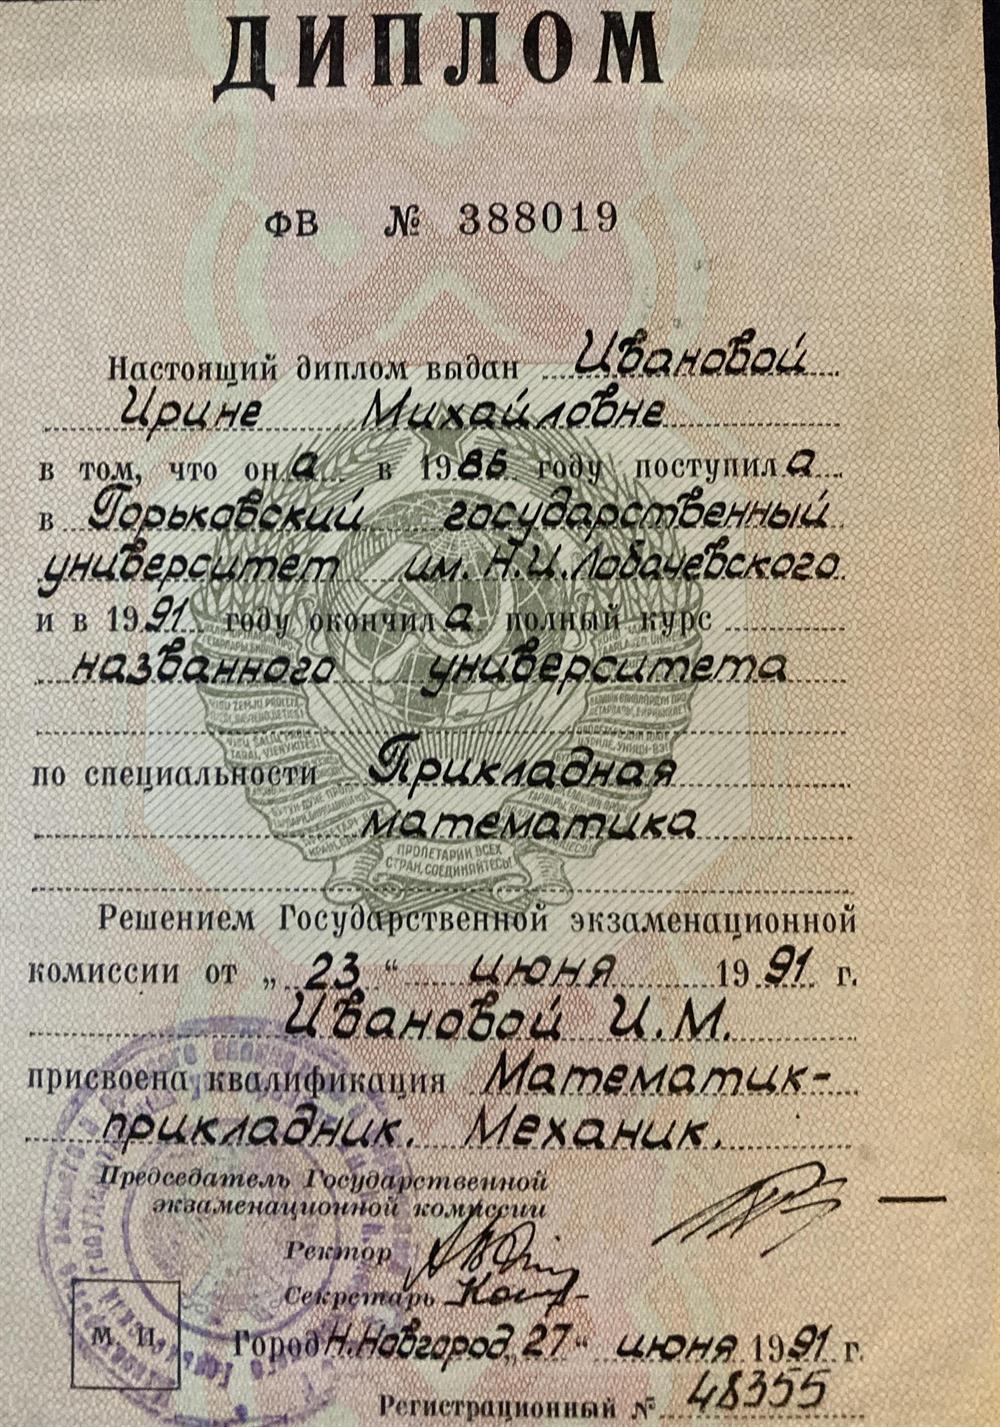 ДИПЛОМ
ФВ № 388019
Настоящий диплом выдан Ивановой
Ирине Михайловне
в том, что она в 1986 году поступила
в Горьковский государственный
университет им. Н.И. Лобачевского
и в 1991 году окончила полный курс
названного университета
по специальности Прикладная
математика
ПРОЛЕТАРИИ ВСЕХ
СТРАН, СОЕДИНЯЙТЕСЬ!
Решением Государственной экзаменационной
комиссии от „23“ июня 1991 г.
Ивановой И.М.
присвоена квалификация Математик-
прикладник. Механик.
Председатель Государственной
экзаменационной комиссии
Ректор
Секретарь
М. П.
Город Н.Новгород „27“ июня 1991 г.
Регистрационный № 48355